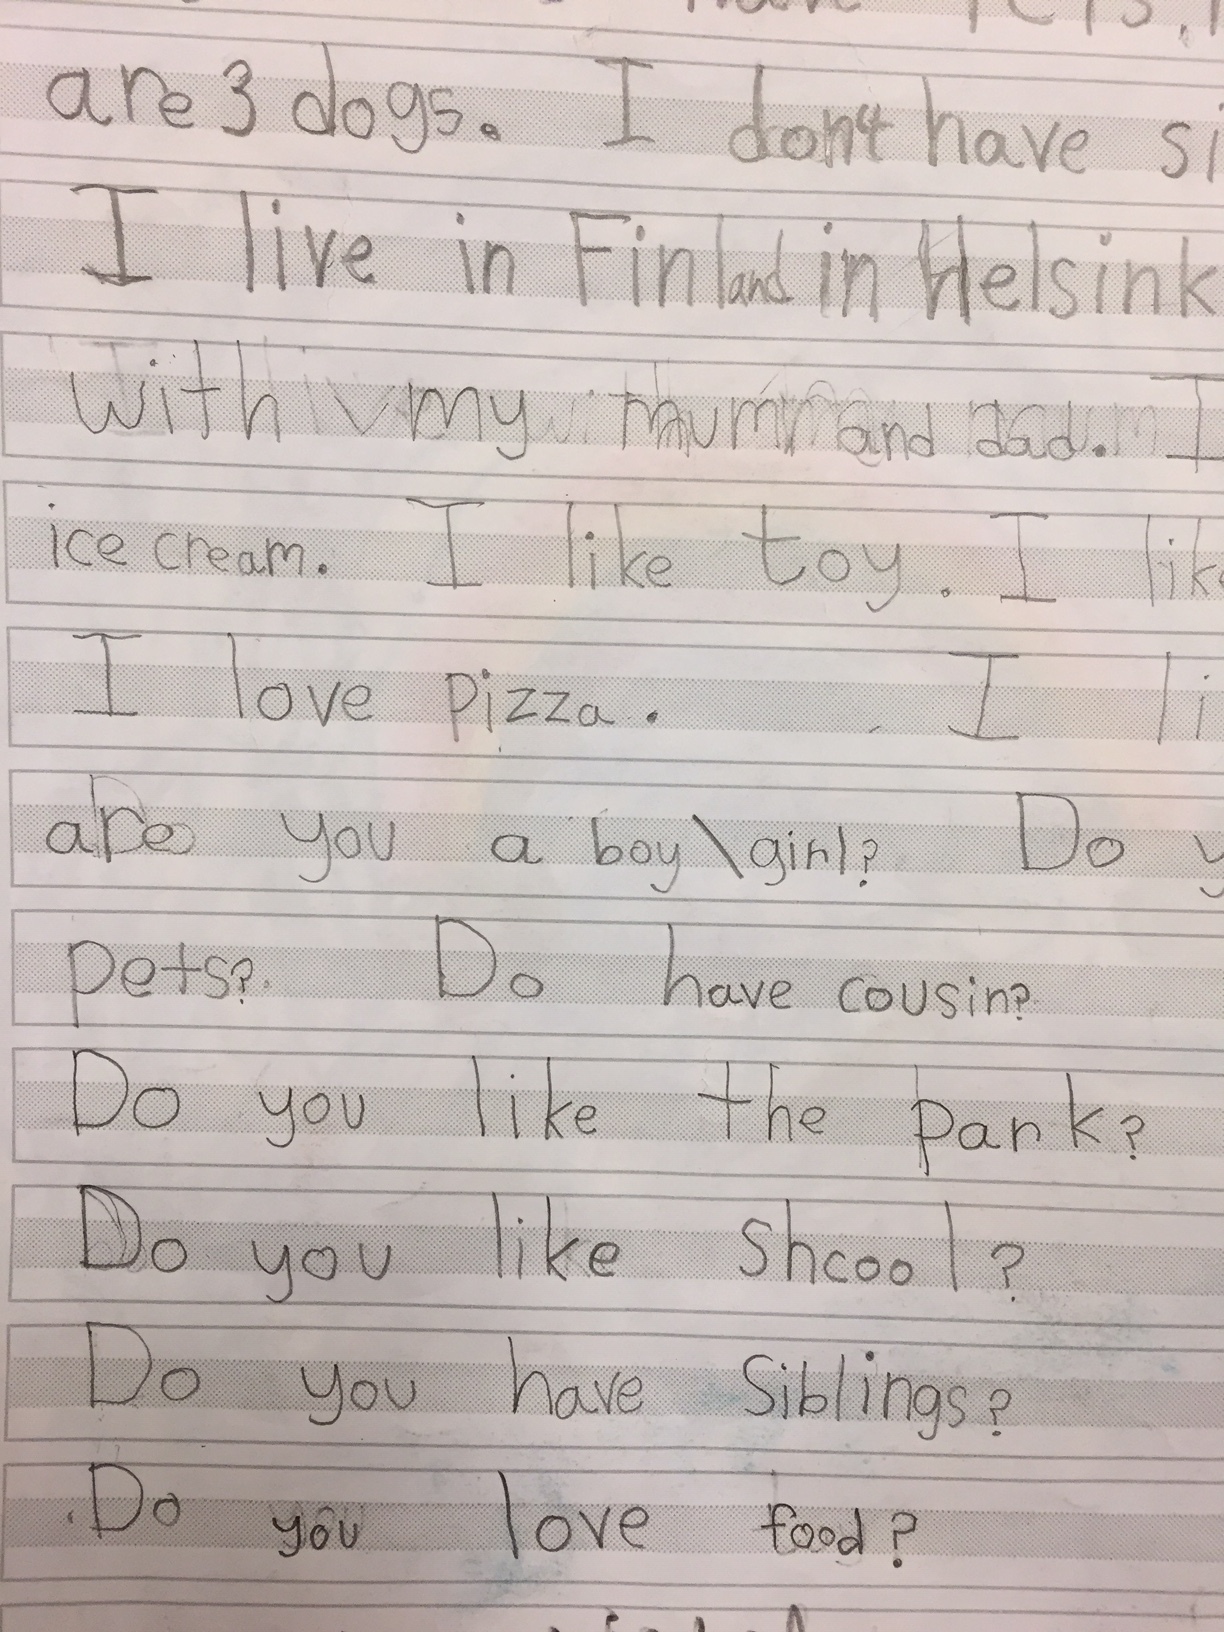 have pets.
are 3 dogs. I don't have si
I live in Finland in Helsink
with my mum and dad. I
ice cream. I like toy. I like
I love pizza. I li
are you a boy\girl? Do y
pets? Do have cousin?
Do you like the park?
Do you like Shcool?
Do you have Siblings?
Do you love food?